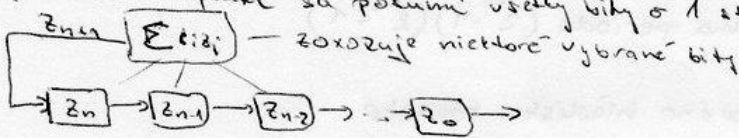 sa posunú všetky bity o 1
z_{n+1} Σ c_i z_i — zoxozuje niektoré vybrané bity
z_n → z_{n-1} → z_{n-2} → ... → z_0 →